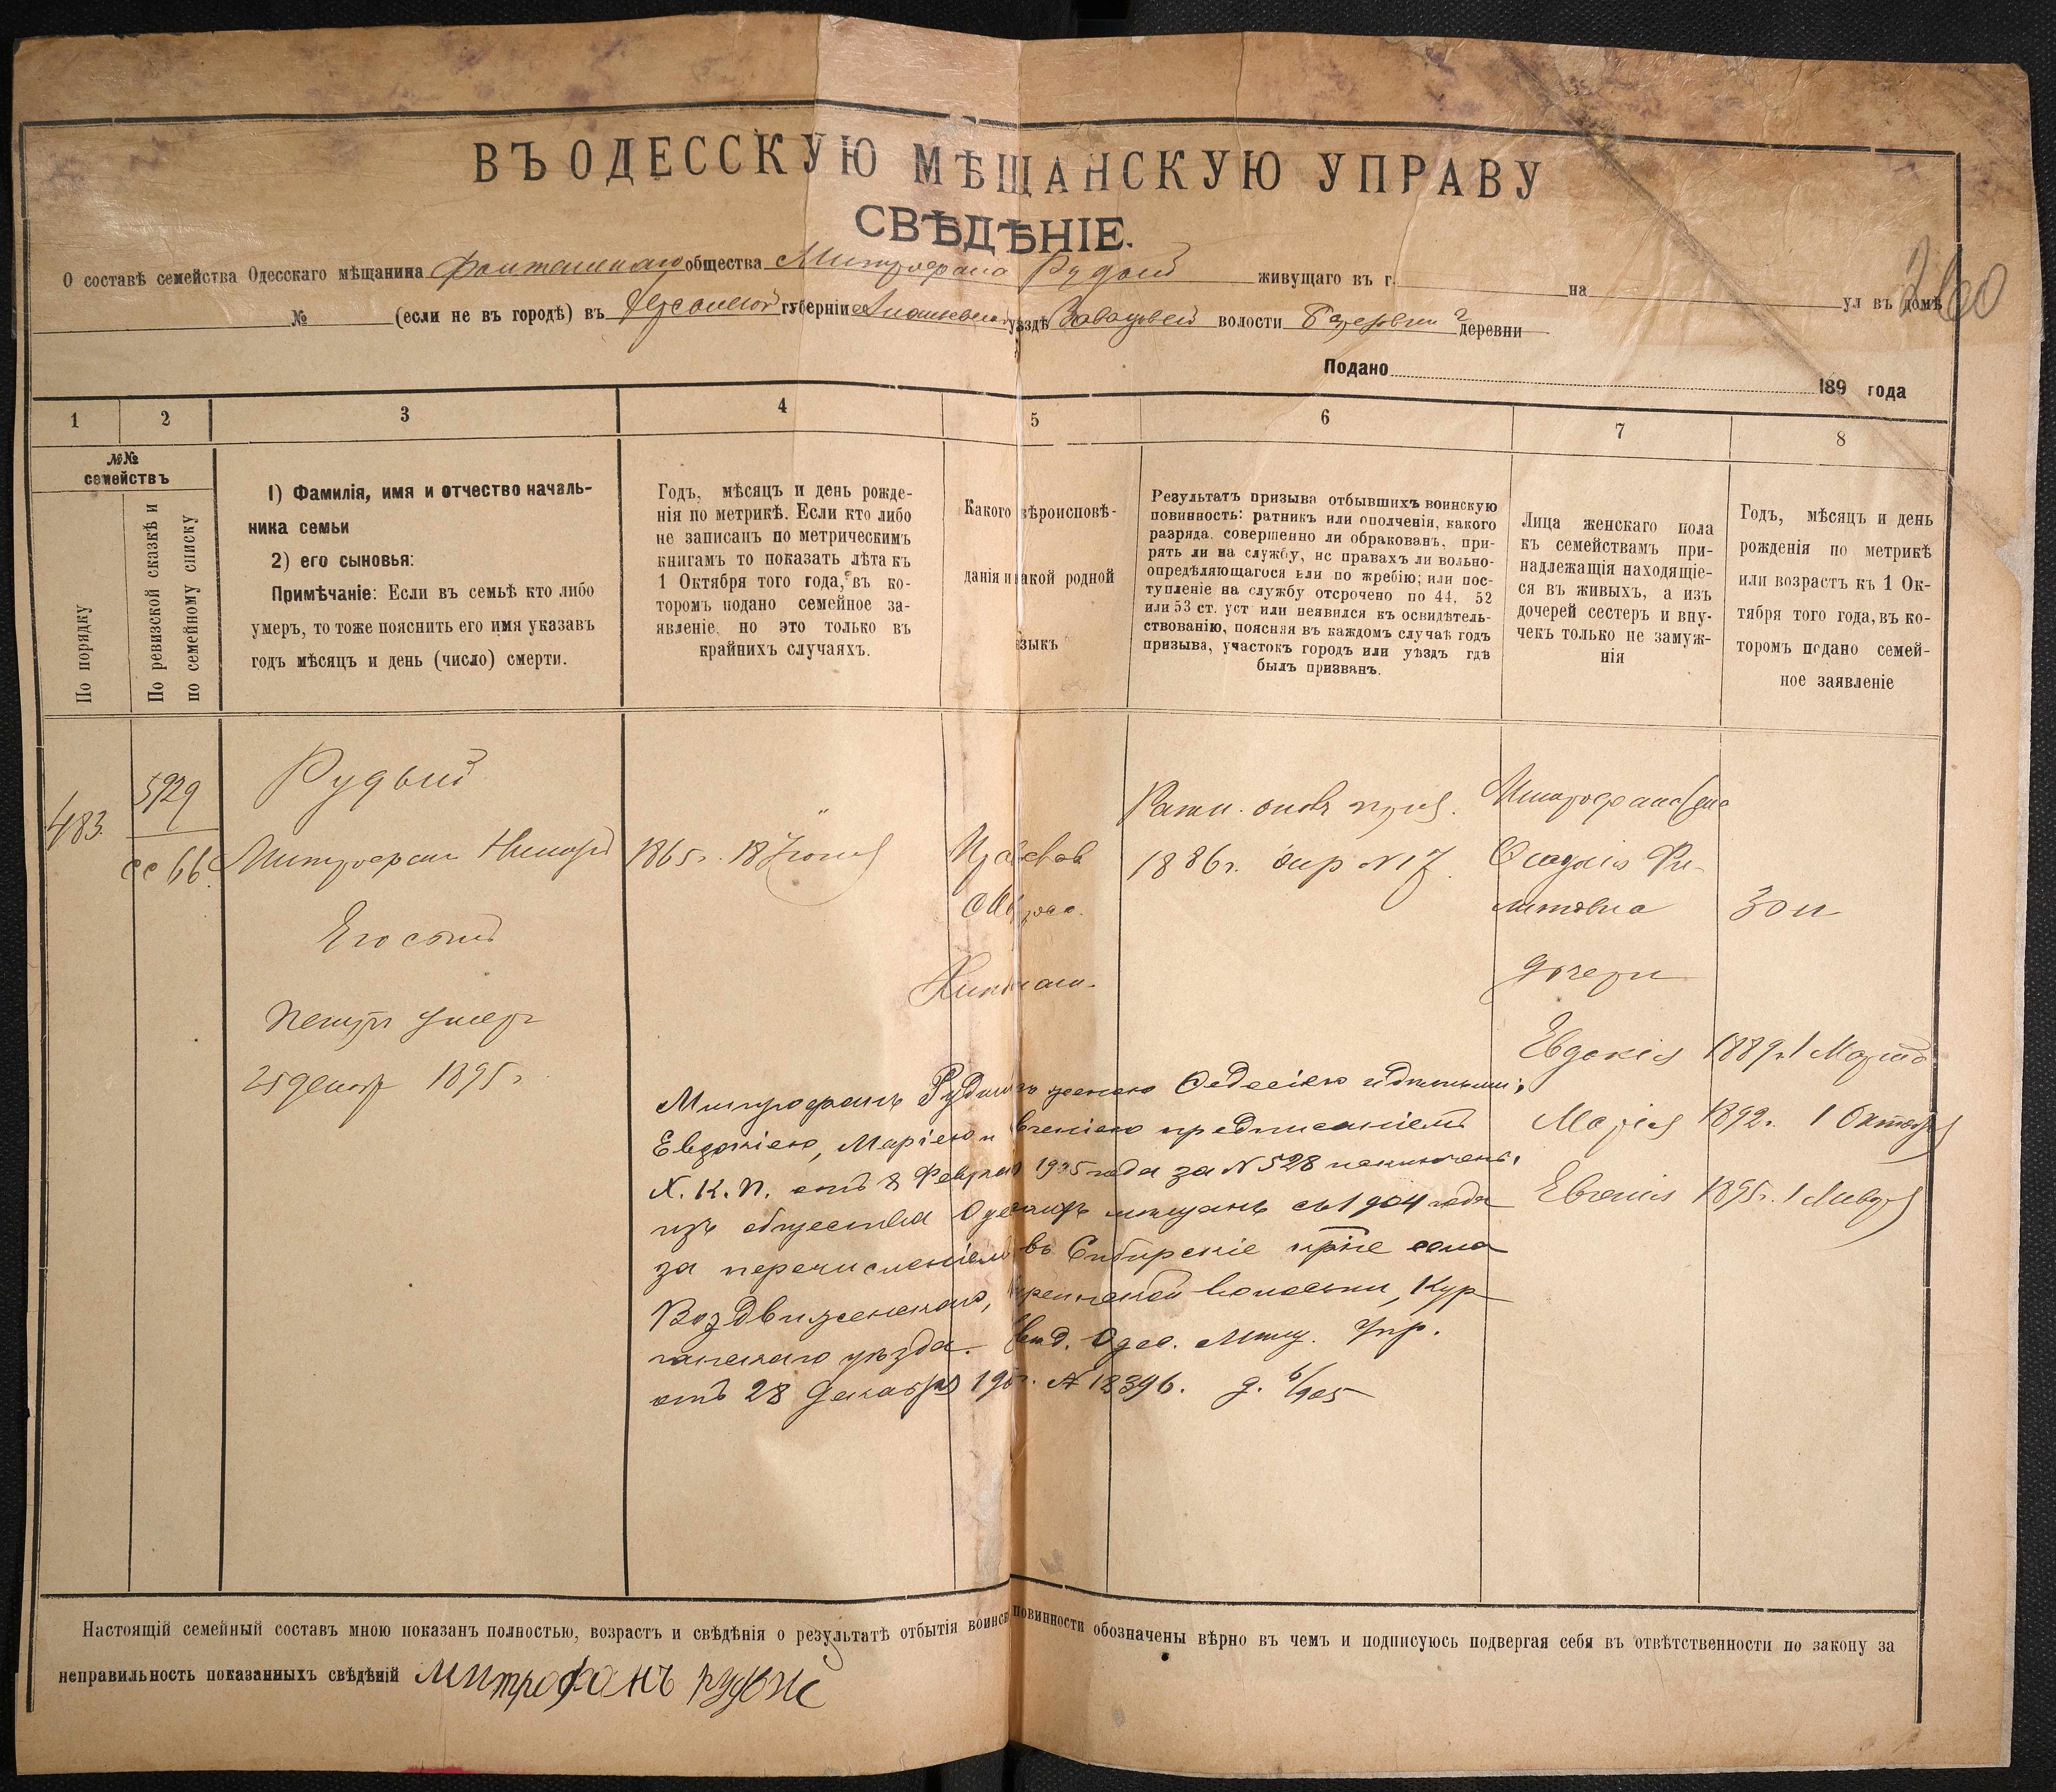 ВЪ ОДЕССКУЮ МѢЩАНСКУЮ УПРАВУ
СВѢДѢНІЕ.
260
О составѣ семейства Одесскаго мѣщанина Фонтанскаго общества Митрофана Рудый живущаго въ г. на ул въ домѣ
№ (если не въ городѣ) въ Херсонской губерніи Ананьевск. уѣздѣ волости деревни
Подано 189 года
1 2 3 4 5 6 7 8
№№ семействъ
По порядку
По ревизской сказкѣ и по семейному списку
1) Фамилія, имя и отчество началь-
ника семьи
2) его сыновья:
Примѣчаніе: Если въ семьѣ кто либо
умеръ, то тоже пояснить его имя указавъ
годъ мѣсяцъ и день (число) смерти.
Годъ, мѣсяцъ и день рожде-
нія по метрикѣ. Если кто либо
не записанъ по метрическимъ
книгамъ то показать лѣта къ
1 Октября того года, въ ко-
торомъ подано семейное за-
явленіе, но это только въ
крайнихъ случаяхъ.
Какого вѣроисповѣ-
данія и какой родной
языкъ
Результатъ призыва отбывшихъ воинскую
повинность: ратникъ или ополченія, какого
разряда, совершенно ли обракованъ, при-
рять ли на службу, нс правахъ ли вольно-
опредѣляющагося или по жребію; или пос-
тупленіе на службу отсрочено по 44, 52
или 53 ст. уст или неявился къ освидѣтель-
ствованію, поясняя въ каждомъ случаѣ годъ
призыва, участокъ городъ или уѣздъ гдѣ
былъ призванъ.
Лица женскаго пола
къ семействамъ при-
надлежащія находящіе-
ся въ живыхъ, а изъ
дочерей сестеръ и вну-
чекъ только не замуж-
нія
Годъ, мѣсяцъ и день
рожденія по метрикѣ
или возрастъ къ 1 Ок-
тября того года, въ ко-
торомъ подано семей-
ное заявленіе
483
5929
сс 66.
Рудый
Митрофан
Его сынъ
Петръ умеръ
25 декабр 1895 г.
1865 г. 18 Іюня
Правосл
Ратн. опол.
1886 г.
Митрофана жена
30 л
дочери
Евдокія 1889 г. 1 Марта
Марія 1892 г. 1 Октября
Евгенія 1895 г. 1
Митрофанъ Рудый съ женою Федосіею и дѣтьми:
Евдокіею, Маріею и Евгеніею предписаніемъ
Х. К. П. отъ 8 Февраля 1905 года за № 528 исключены
изъ общества Одесскихъ мѣщанъ съ 1904 года
за перечисленіемъ въ Сибирскіе кр-не села
Воздвиженскаго, волости, Кур-
ганскаго уѣзда. Одес. Мѣщ. Упр.
отъ 28 Декабря № 18396. д. 6/905
Настоящій семейный составъ мною показанъ полностью, возрастъ и свѣдѣнія о результатѣ отбытія воинск повинности обозначены вѣрно въ чемъ и подписуюсь подвергая себя въ отвѣтственности по закону за
неправильность показанныхъ свѣдѣній Митрофанъ Рудые